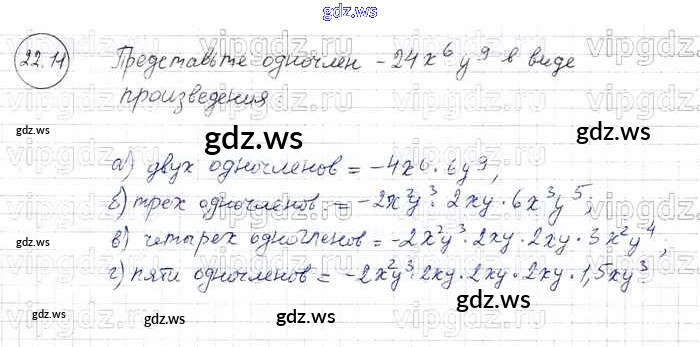 gdz.ws
22.14 Представьте одночлен -24x⁶y⁹ в виде
произведения
gdz.ws
gdz.ws
gdz.ws
а) двух одночленов = -4x6 · 6y9,
б) трех одночленов = -2x²y³ · 2xy · 6x³y⁵;
в) четырех одночленов = -2x²y³ · 2xy · 2xy · 3x²y⁴,
gdz.ws
г) пяти одночленов = -2x²y³ · 2xy · 2xy · 2xy · 1,5xy³
gdz.ws
gdz.ws